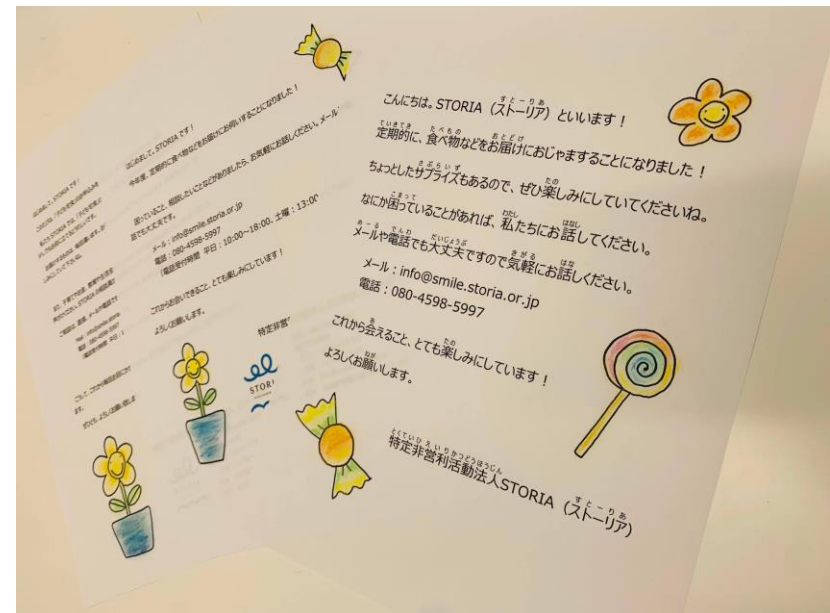 こんにちは。STORIA（ストーリア）といいます！
定期的に、食べ物などをお届けにおじゃますることになりました！
ちょっとしたサプライズもあるので、ぜひ楽しみにしていてくださいね。
なにか困っていることがあれば、私たちにお話してください。
メールや電話でも大丈夫ですので気軽にお話しください。
メール：info@smile.storia.or.jp
電話：080-4598-5997
これから会えること、とても楽しみにしています！
よろしくお願いします。
特定非営利活動法人STORIA（ストーリア）
はじめまして、STORIAです！
今年度、定期的に食べ物などをお届けにお伺いすることになりました！
困っていること、相談したいことなどがありましたら、お気軽にお話しください。メール
話でも大丈夫です。
メール：info@smile.storia.or.jp
電話：080-4598-5997
（電話受付時間 平日：10:00～18:00、土曜：13:00
これからお会いできること、とても楽しみにしています！
よろしくお願いします。
特定非営
STORI
はじめまして、STORIAです！